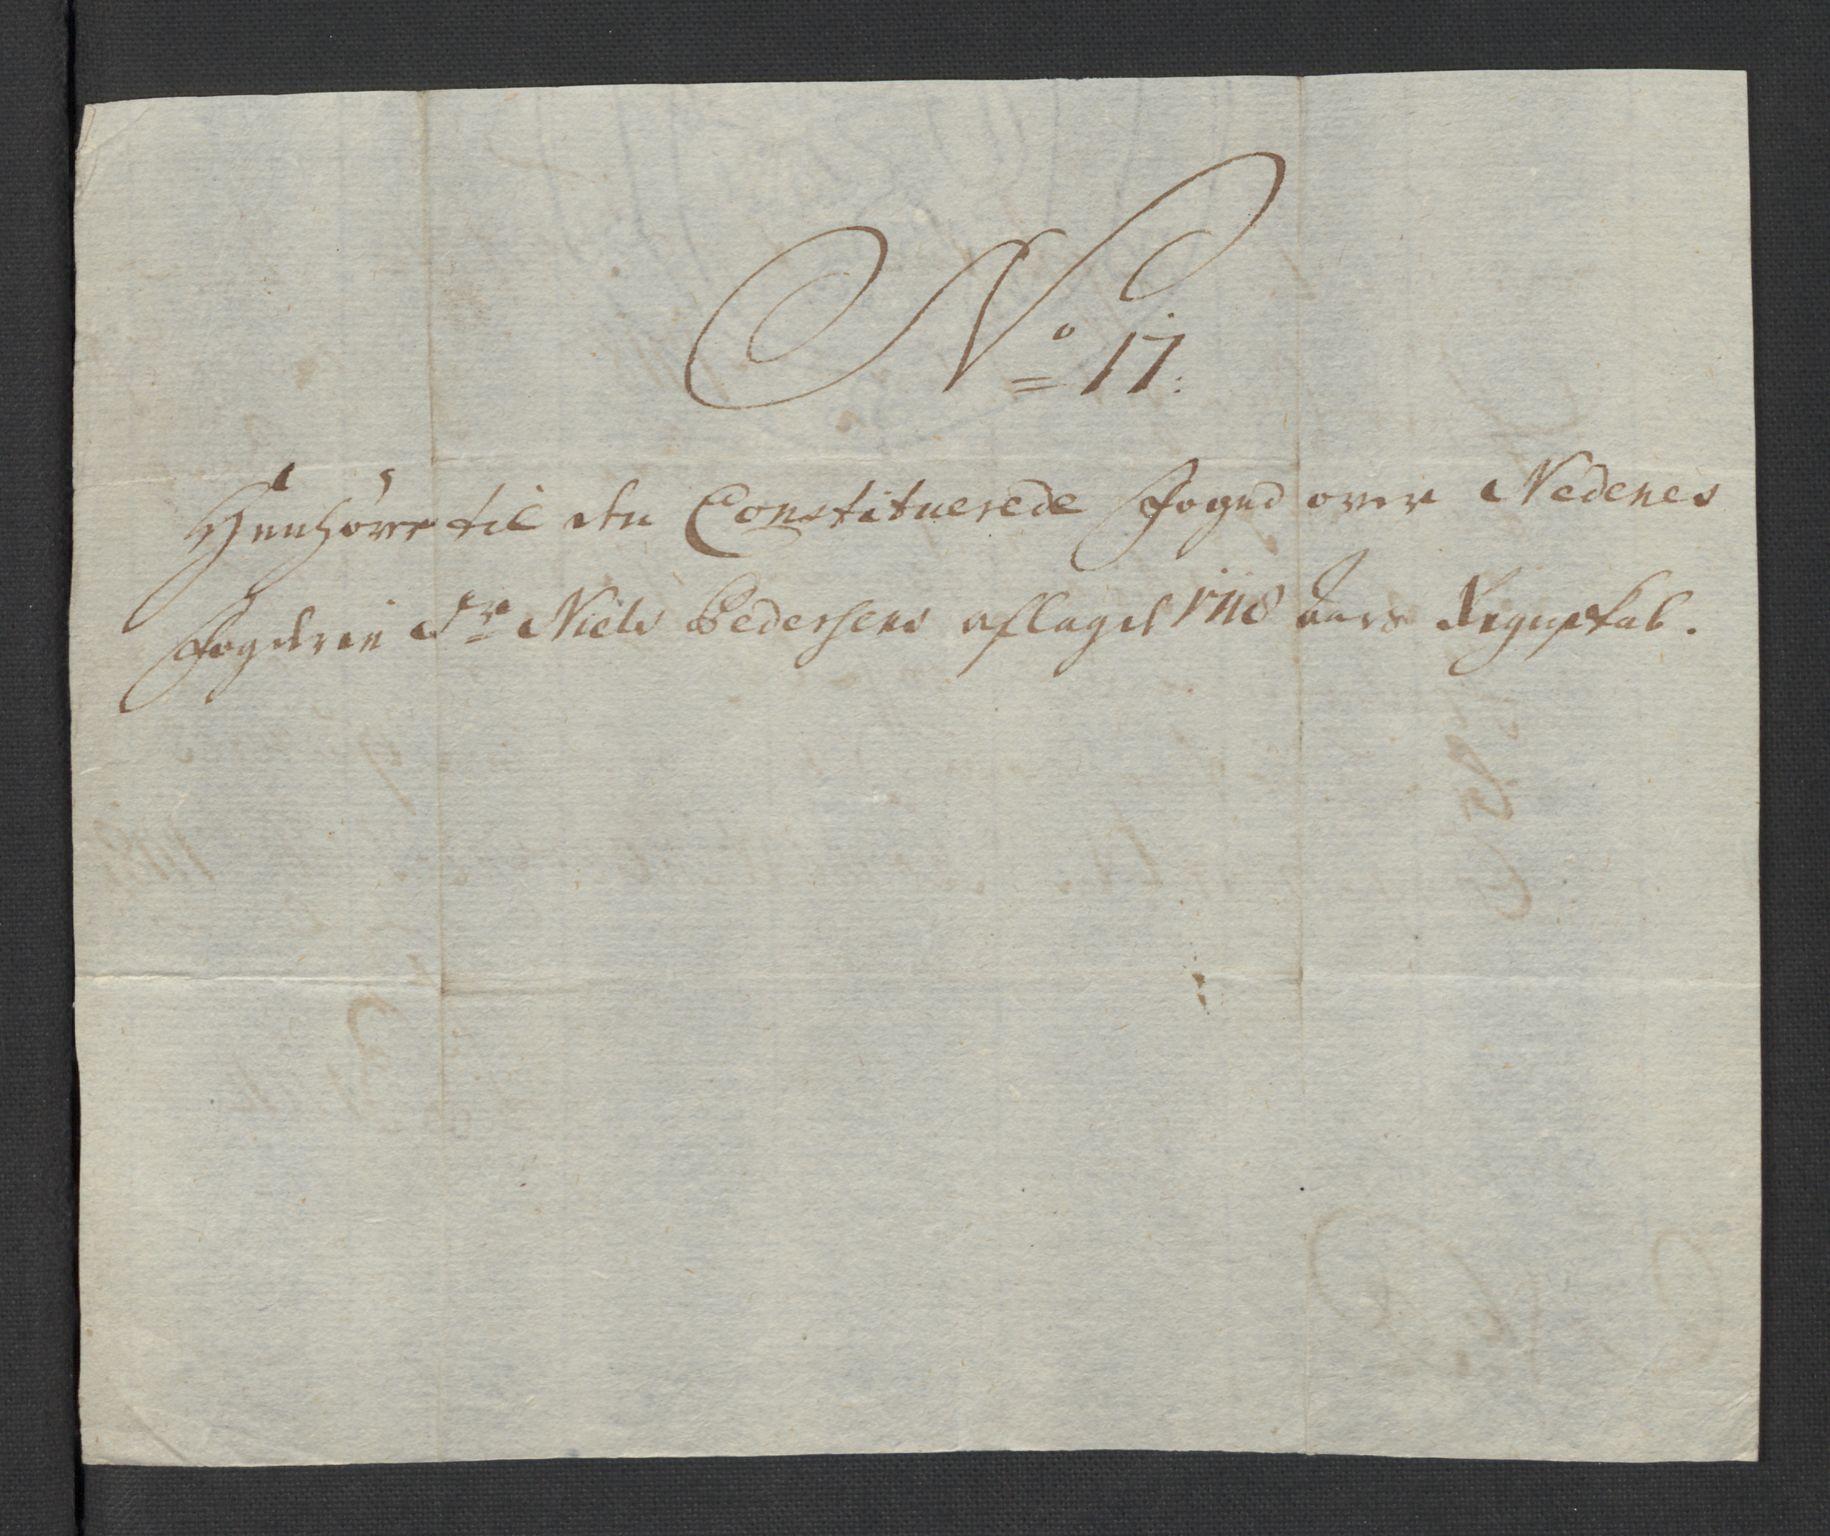 No 17:
Henhörer til den Constituerede Foged over Nedenes
Fogderie Sr Niels Pedersens aflagde 1718 aars Regnskab.